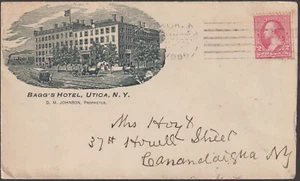 BAGG'S HOTEL, UTICA, N.Y.
D. M. JOHNSON, PROPRIETOR.
Mrs Hoyt
37 Howell Street
Canandaigua NY